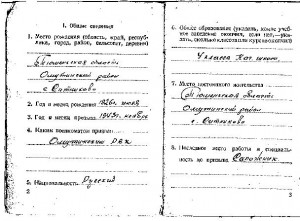 I. Общие сведения
1. Место рождения (область, край, республика, город, район, сельсовет, деревня)
Тюменская область
Омутинский район
с. Ситниково
2. Год и месяц рождения 1926 г. июль
3. Год и месяц призыва 1943 г. ноябрь
4. Каким военкоматом призван
Омутинским РВК
5. Национальность Русский
2
6. Общее образование (указать, какое учебное заведение окончил, если нет,
сколько классов или курсов окончил)
7. Место постоянного жительства
Тюменская область
Омутинский район
с. Ситниково
8. Последнее место работы и специальность до призыва
3